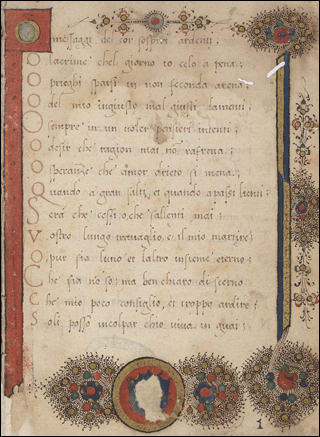 O messaggi del cor sospiri ardenti:
O lacrime chel giorno io celo a pena:
O prieghi sparsi in non feconda arena:
O del mio ingiusto mal giusti lamenti:
O sempre in un voler pensieri intenti:
O desir che ragion mai no rafrena:
O speranze che amor drieto si mena:
Quando a gran salti, et quando a passi lienti:
Sera che cossi o, che sallenti mai:
Vostro lungo travaglio, e il mio martire:
O pur fia luno et laltro insieme eterno:
Che fia no so: ma ben chiaro discerno
Che mio poco consiglio, et troppo ardire:
Soli posso incolpar chio viva in guai:
1